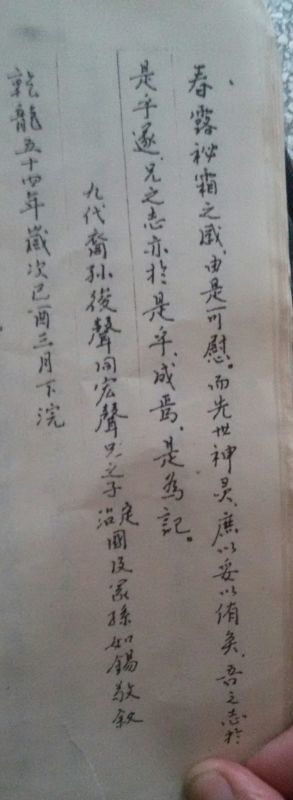 春露秋霜之感、由是可慰。而先世神灵、庶以妥以侑矣、吾之志於
是乎遂、兄之志亦於是乎、成焉。是為記。
九代裔孫後聲同宏聲兄之子定國治國及冢孫如錫敬敘
乾龍五十四年歲次己酉三月下浣